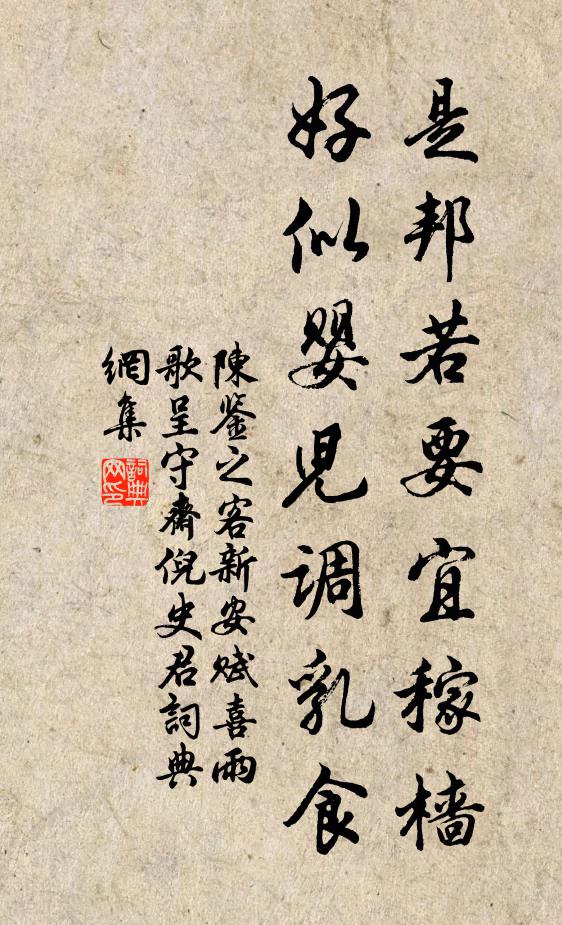 是邦若要宜稼檣
好似嬰兒調乳食
陳鉴之客新安赋喜雨
歌呈守齋倪史君詞典
網集
詞典網印